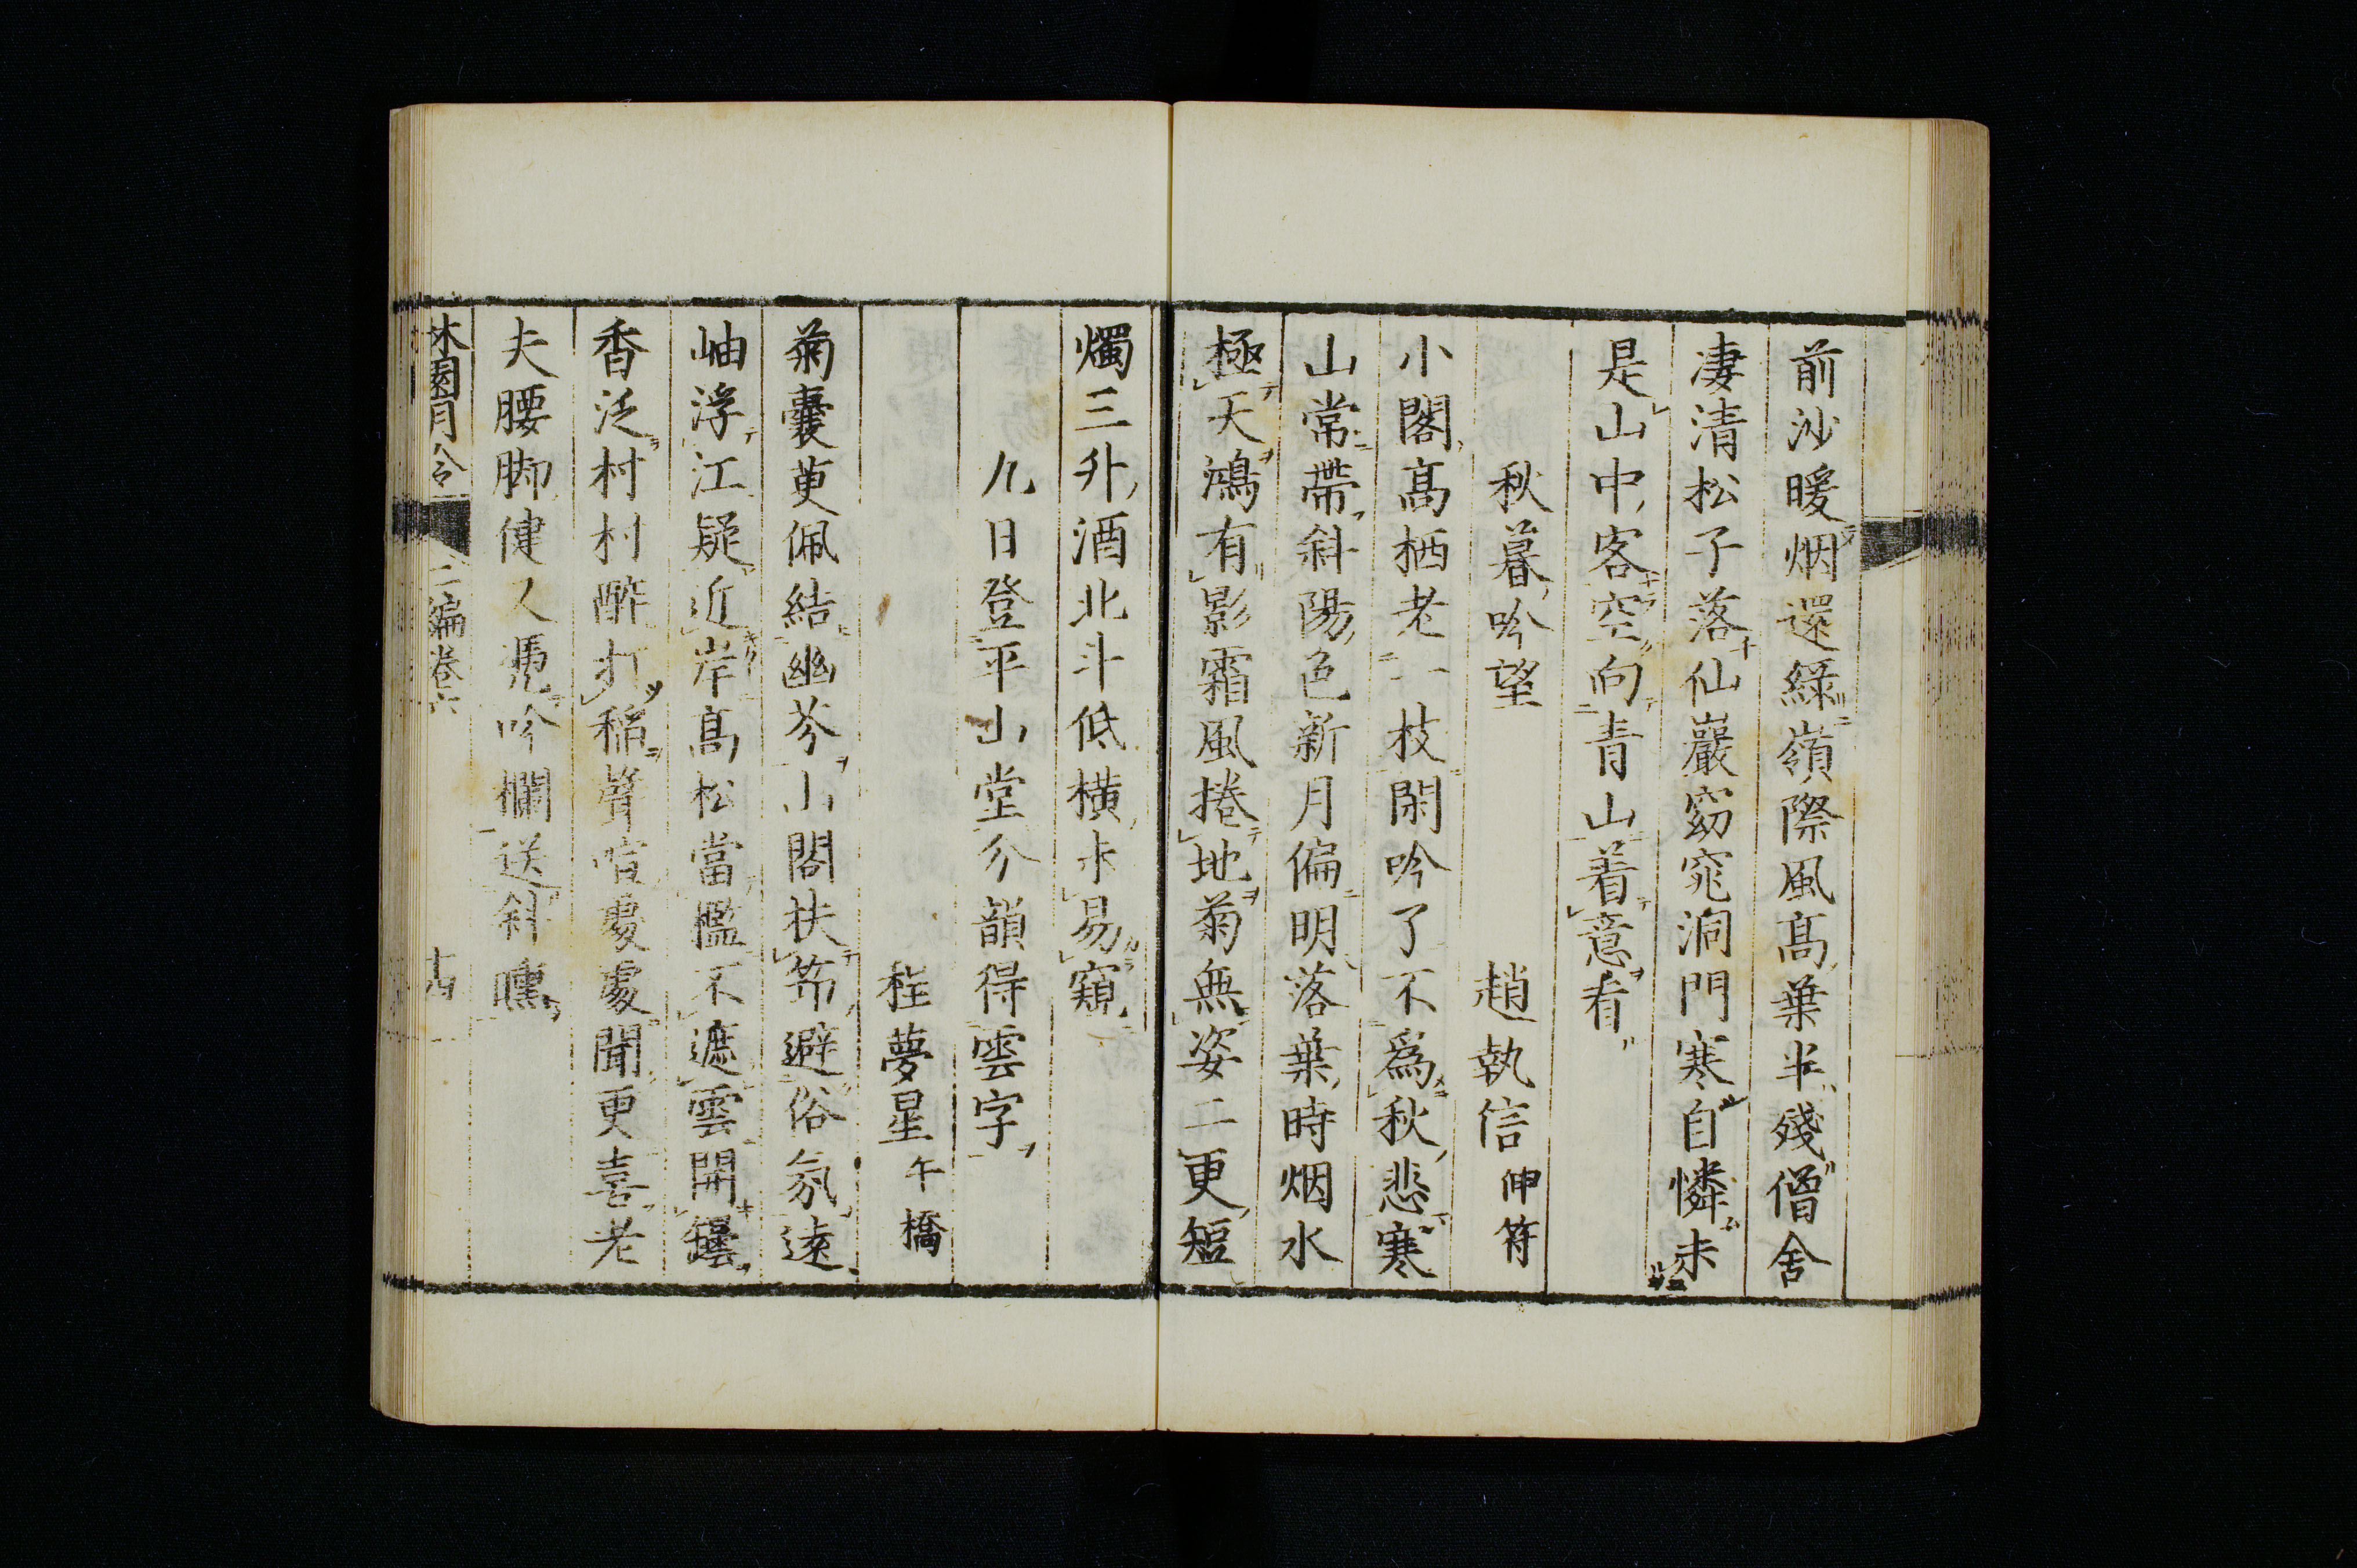 前沙暖烟還綠嶺際風高葉半殘僧舍
凄清松子落仙巖窈窕洞門寒自憐未
是山中客空向青山着意看
秋暮吟望
趙執信 伸符
小閣高栖老一枝閑吟了不爲秋悲寒
山常帶斜陽色新月偏明落葉時烟水
極天鴻有影霜風捲地菊無姿二更短
燭三升酒北斗低橫未易窺
九日登平山堂分韻得雲字
程夢星 午橋
菊囊萸佩結幽芬小閣扶笻避俗氛遠
岫浮江疑近岸高松當檻不遮雲開罎
香泛村村醉打稻聲喧處處聞更喜老
夫腰脚健人凭吟欄送斜曛
林園月令
二編卷六
十四